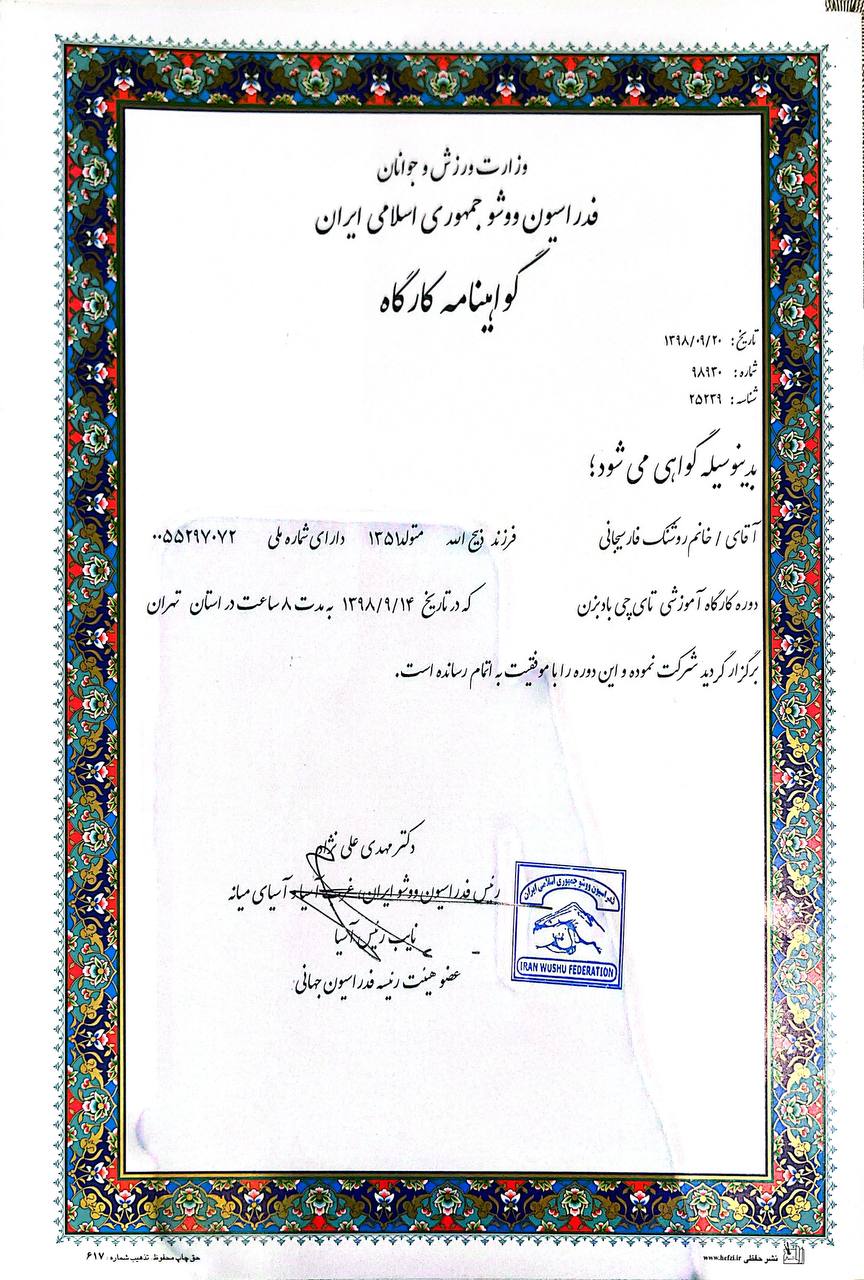 وزارت ورزش و جوانان
فدراسیون ووشو جمهوری اسلامی ایران
گواهینامه کارگاه
تاریخ: ۱۳۹۸/۰۹/۲۰
شماره: ۹۸۹۳۰
شناسه: ۲۵۲۳۹
بدینوسیله گواهی می شود؛
آقای / خانم روشنک فارسیجانی فرزند ذبیح الله متولد۱۳۵۱ دارای شماره ملی ۰۰۵۵۲۹۷۰۷۲
دوره کارگاه آموزشی تای چی بادبزن که در تاریخ ۱۳۹۸/۹/۱۴ به مدت ۸ ساعت در استان تهران
برگزار گردید شرکت نموده و این دوره را با موفقیت به اتمام رسانده است.
دکتر مهدی علی نژاد
رئس فدراسیون ووشو ایران، غرب آسیا، آسیای میانه
نایب رئس آسیا
عضو هیئت رئیسه فدراسیون جهانی
فدراسیون ووشو جمهوری اسلامی ایران
IRAN WUSHU FEDERATION
نشر حفظی www.hefzi.ir
حق چاپ محفوظ. تذهیب شماره: ۶۱۷